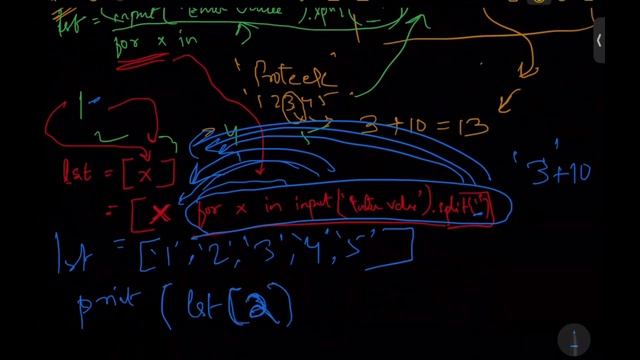 lst = (input('Enter values').split(
for x in
'Proteek'
'1 2 3 4 5'
1
2 3 4
3 + 10 = 13
'3' + 10
lst = [x]
= [x for x in input('Enter value').split(',')]
lst = ['1','2','3','4','5']
print (lst[2)